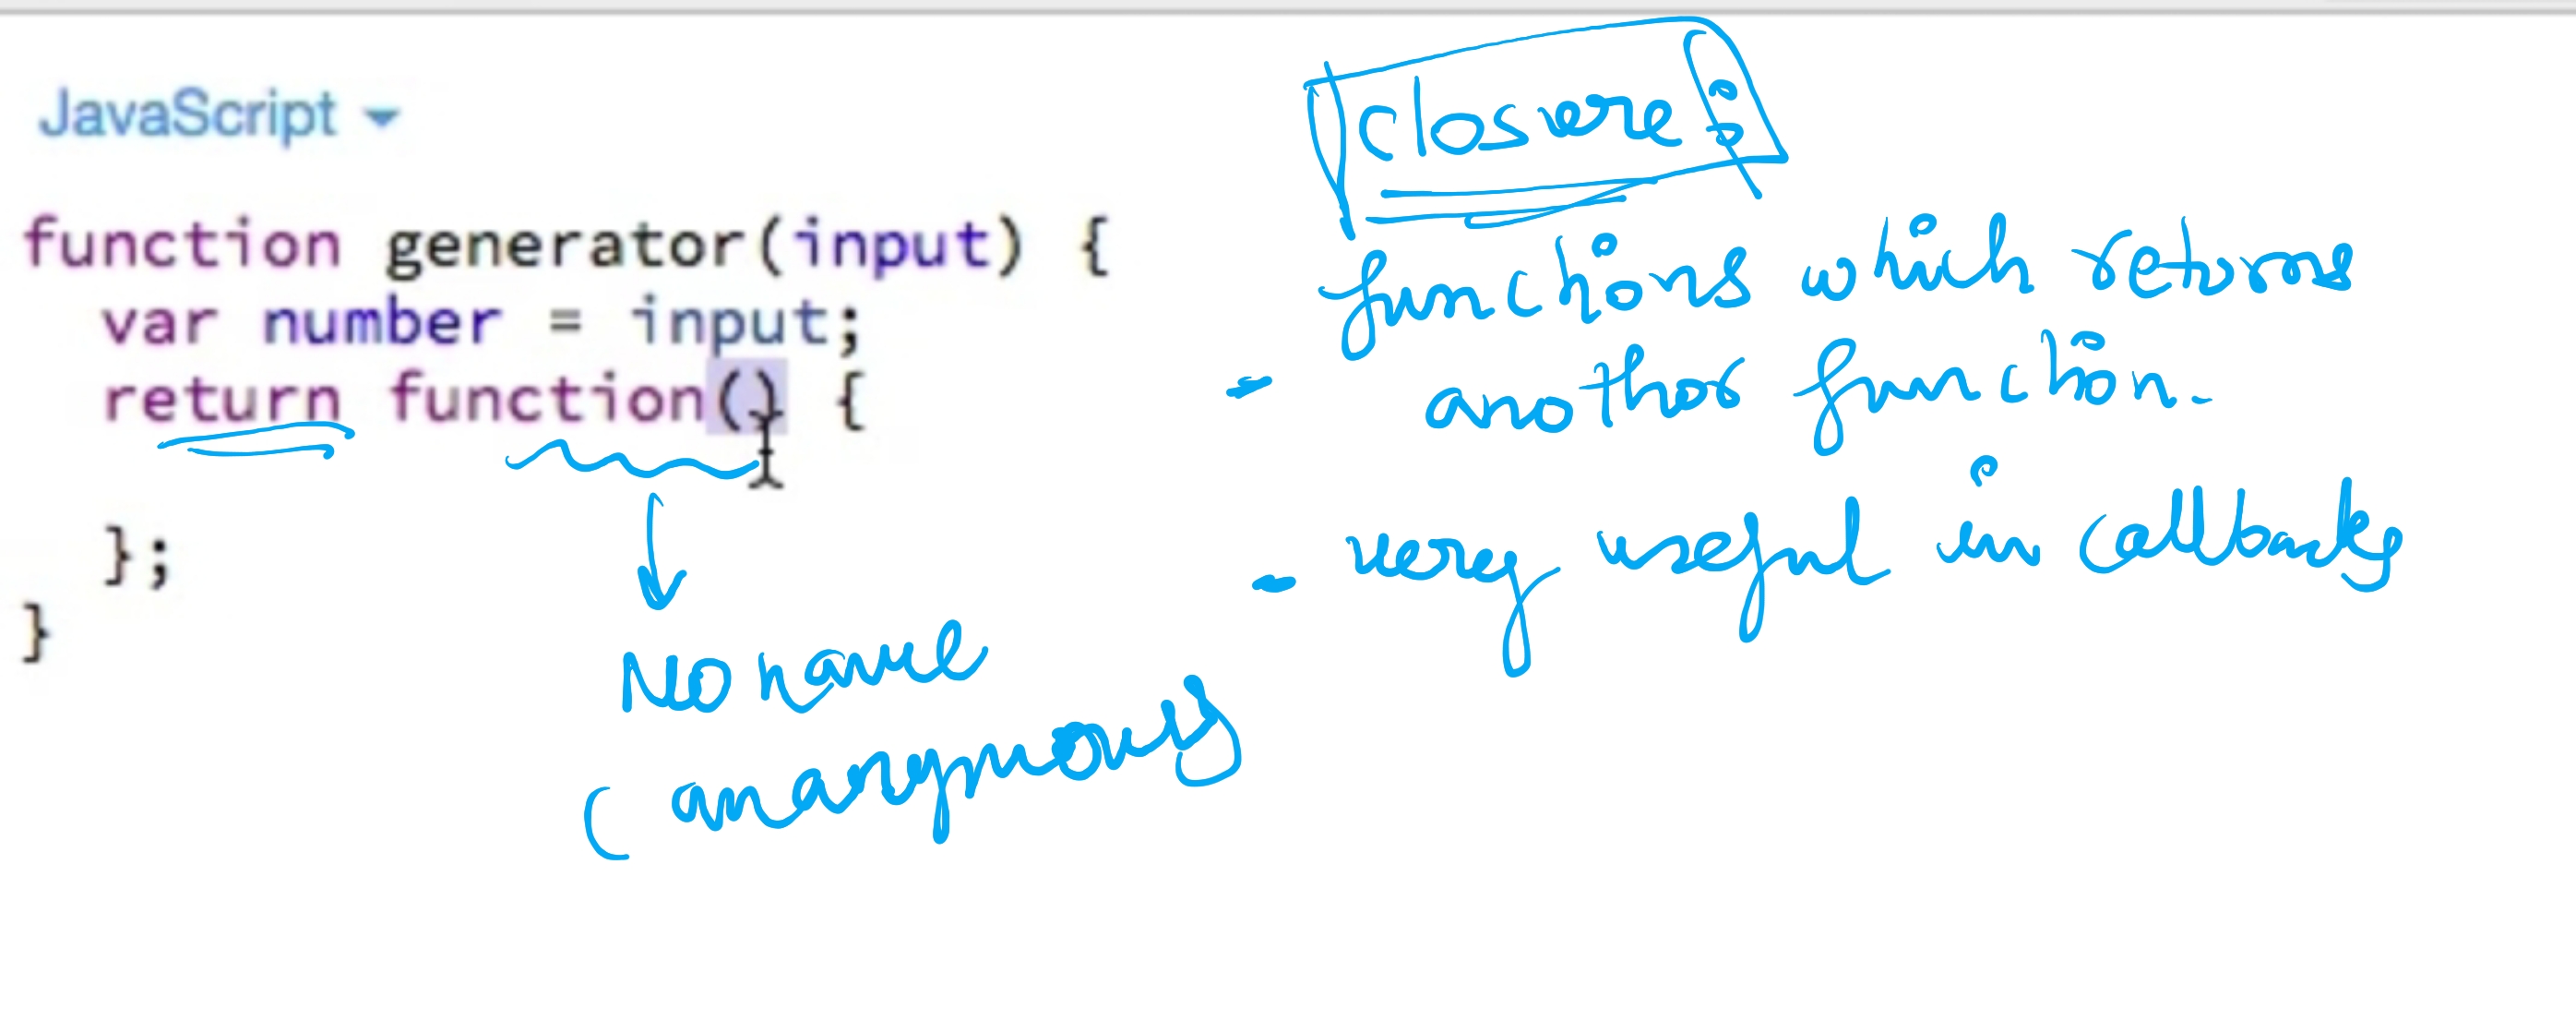 JavaScript
function generator(input) {
var number = input;
return function() {
};
}
No name
( ananymous
closure:
functions which returns
- another function.
- very useful in callbacks